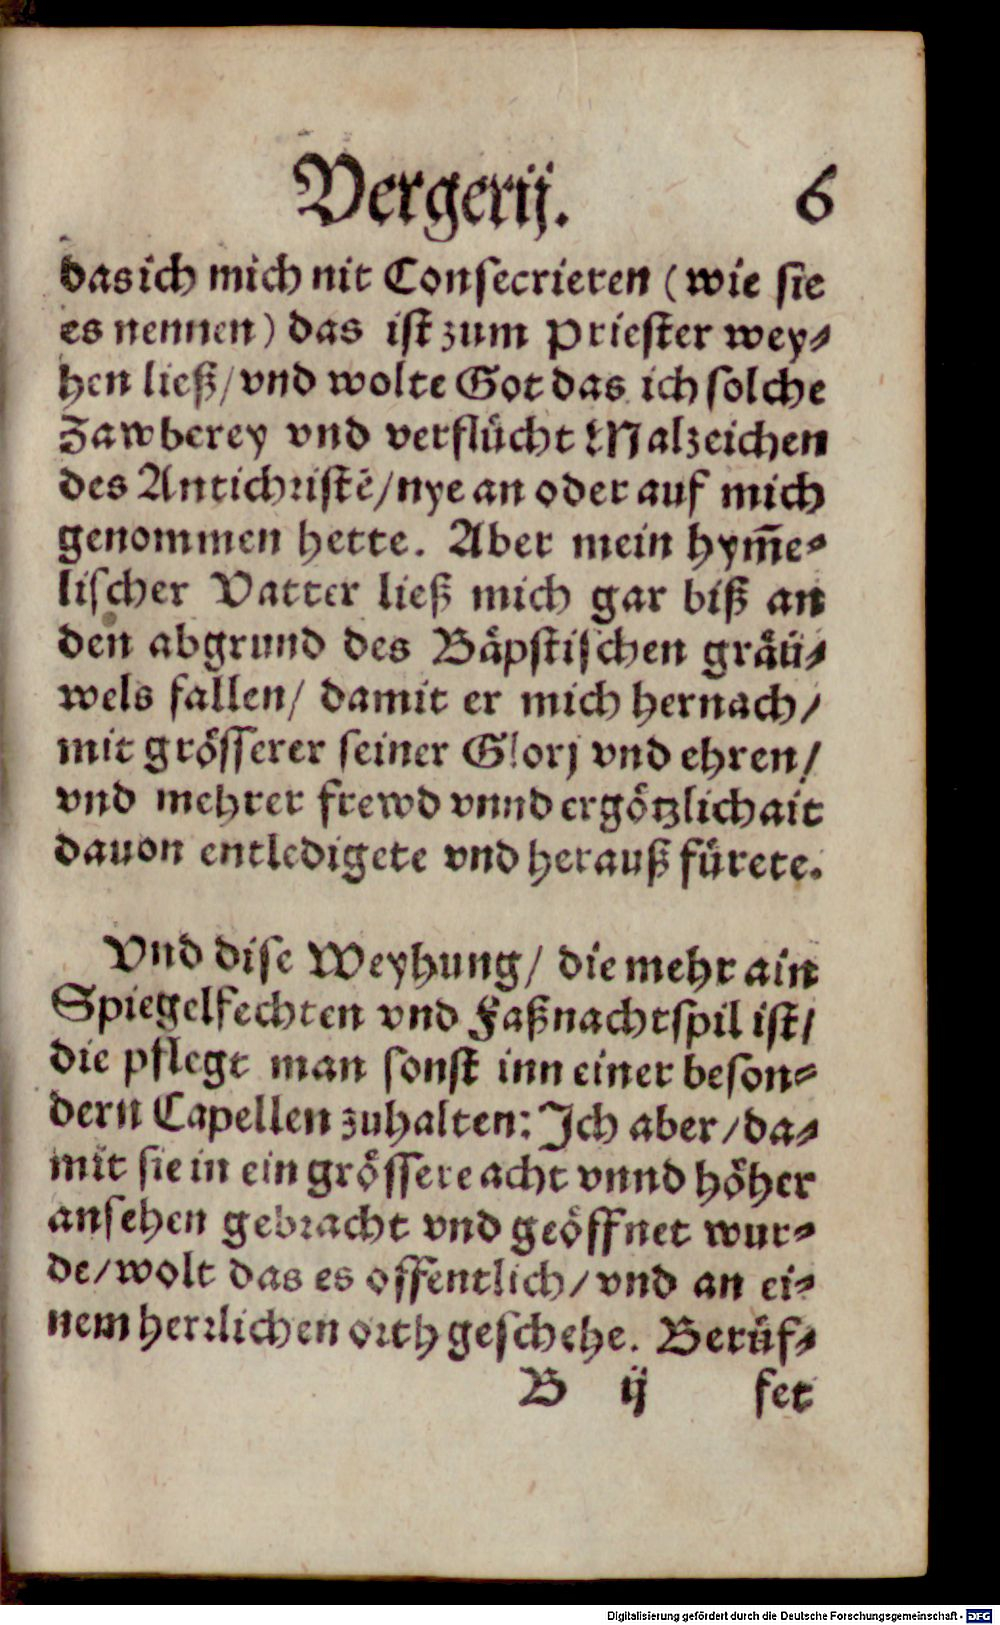 Vergerij. 6
das ich mich nit Consecrieren (wie sie
es nennen) das ist zum Priester wey-
hen ließ/ vnd wolte Got das ich solche
Zawberey vnd verflůcht Malzeichen
des Antichristē/ nye an oder auf mich
genommen hette. Aber mein hym̄e-
lischer Vatter ließ mich gar biß an
den abgrund des Bäpstischen gräu-
wels fallen/ damit er mich hernach/
mit grösserer seiner Glorj vnd ehren/
vnd mehrer frewd vnnd ergötzlichait
dauon entledigete vnd herauß fürete.
Vnd dise Weyhung/ die mehr ain
Spiegelfechten vnd Faßnachtspil ist/
die pflegt man sonst inn einer beson-
dern Capellen zuhalten: Ich aber/ da-
mit sie in ein grössere acht vnnd höher
ansehen gebracht vnd geöffnet wur-
de/ wolt das es offentlich/ vnd an ei-
nem herrlichen orth geschehe. Berůf-
B ij fet
Digitalisierung gefördert durch die Deutsche Forschungsgemeinschaft - DFG